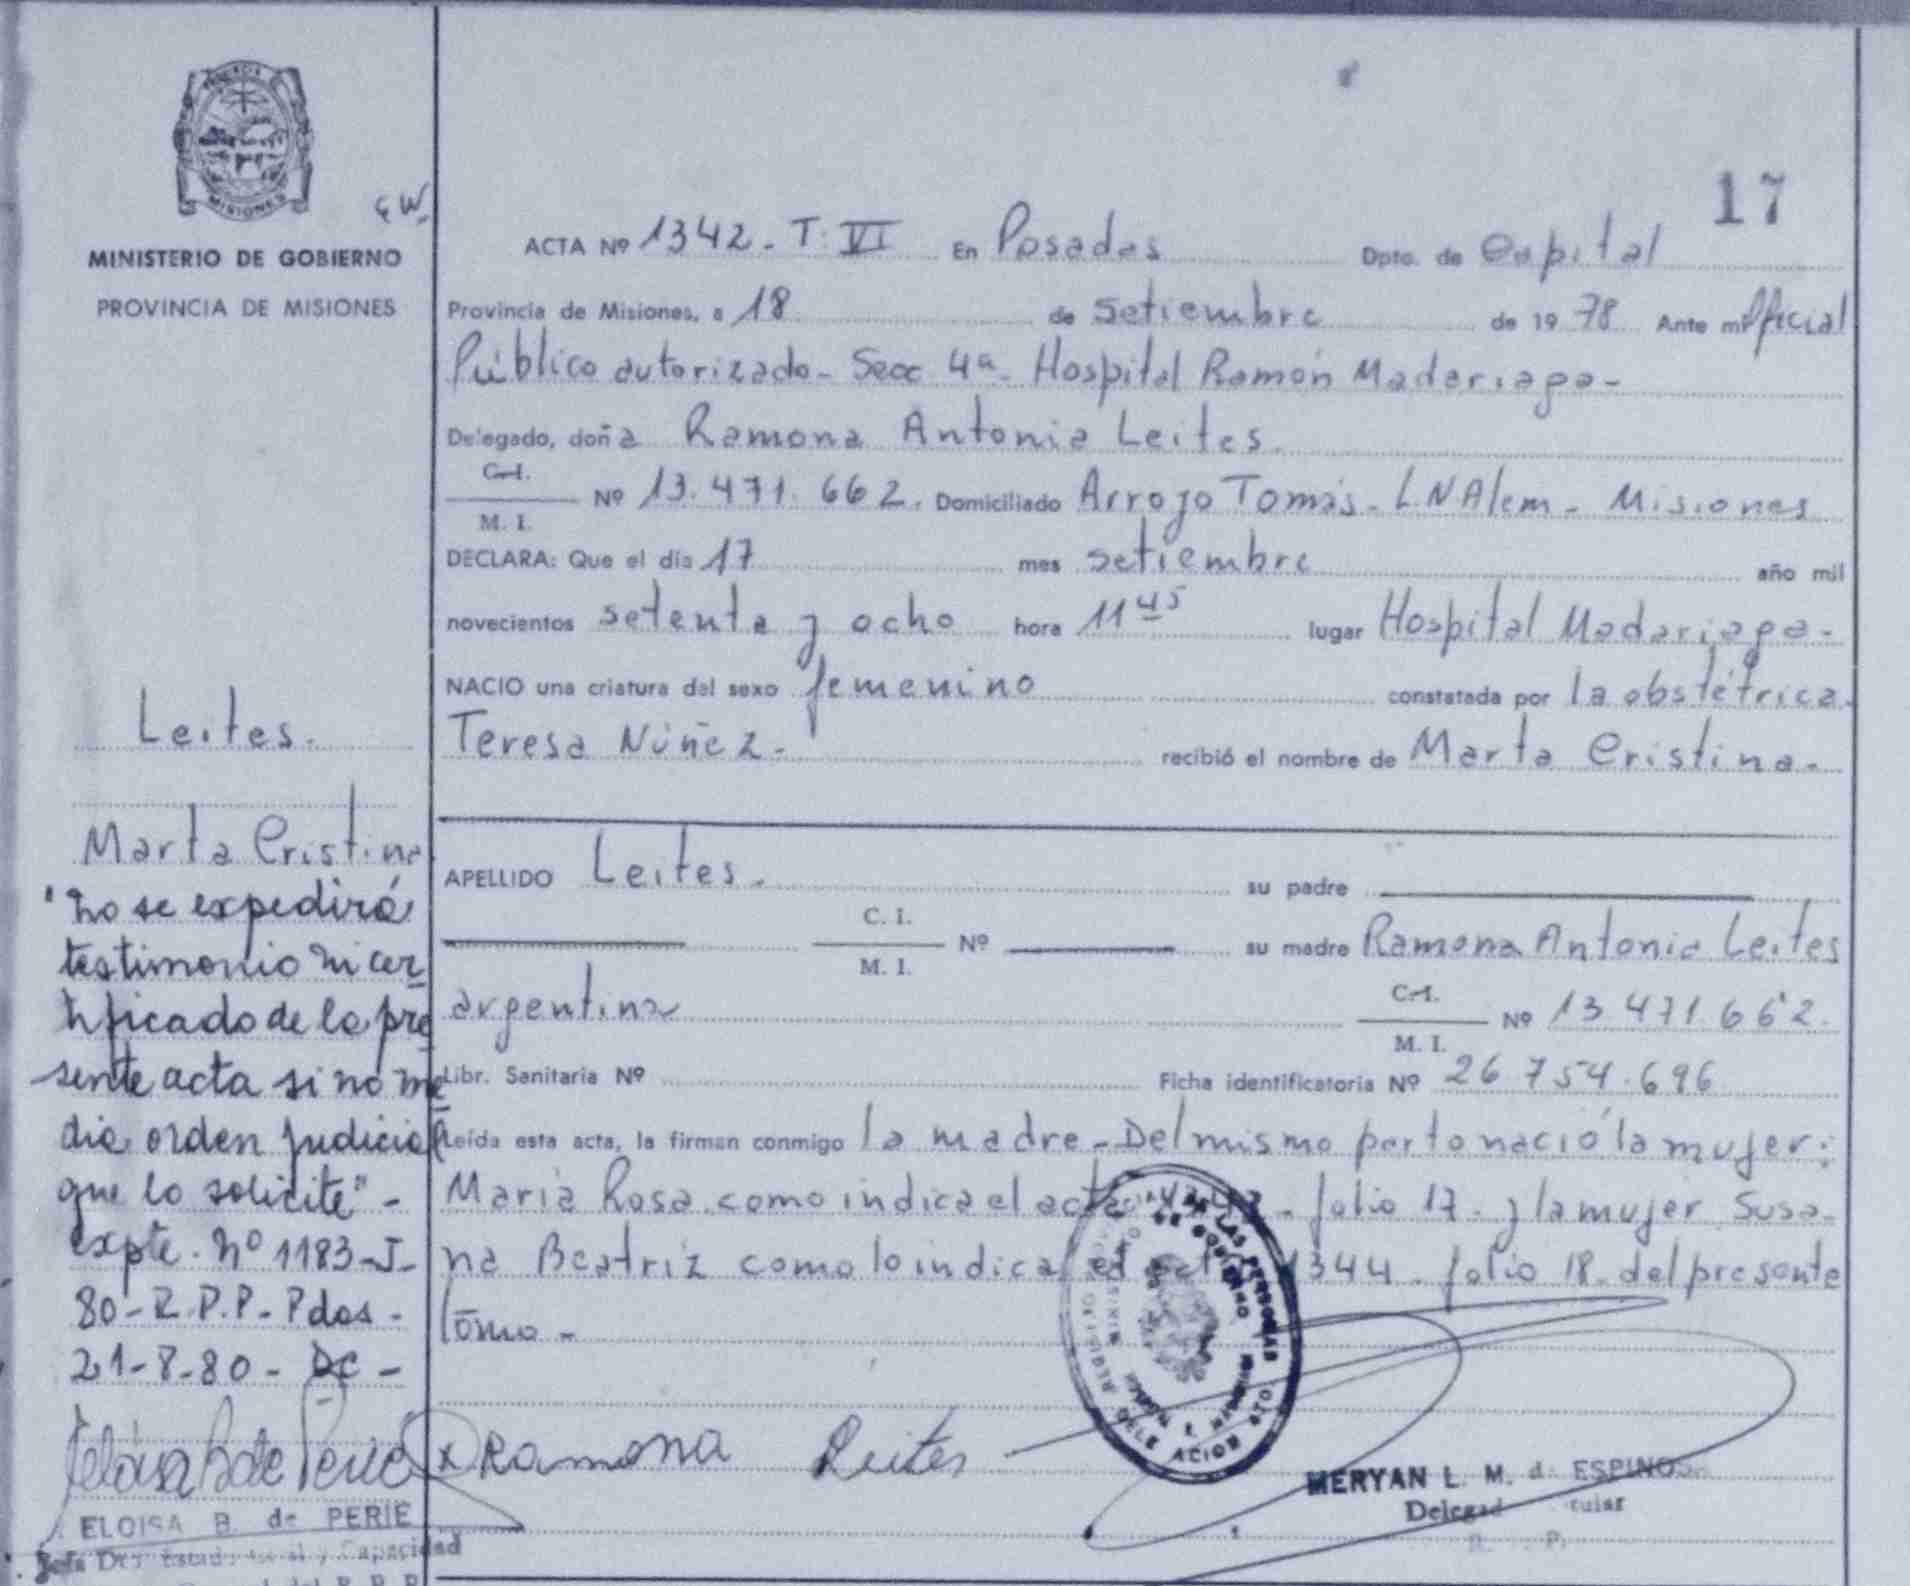 MISIONES
MINISTERIO DE GOBIERNO
PROVINCIA DE MISIONES
17
ACTA Nº 1342 - T. VI En Posadas Dpto. de Capital
Provincia de Misiones, a 18 de setiembre de 1978 Ante mí Oficial
Público autorizado - Secc 4ª - Hospital Ramón Madariaga -
Delegado, doña Ramona Antonia Leites.
C.I.
M. I.
Nº 13.471.662. Domiciliado Arroyo Tomás - L.N Alem - Misiones
DECLARA: Que el día 17 mes setiembre año mil
novecientos setenta y ocho hora 11 45 lugar Hospital Madariaga -
NACIO una criatura del sexo femenino constatada por la obstétrica
Teresa Núñez - recibió el nombre de Marta Cristina -
APELLIDO Leites - su padre
C. I.
M. I.
Nº su madre Ramona Antonia Leites
argentina
C.I.
M. I.
Nº 13.471.662.
Libr. Sanitaria Nº Ficha identificatoria Nº 26.754.696
Leída esta acta, la firman conmigo la madre - Del mismo parto nació la mujer:
María Rosa como indica el acta - folio 17 - y la mujer Susa-
na Beatriz como lo indica el 1344 - folio 18 - del presente
tomo -
Ramona Leites
MERYAN L. M. de ESPINOSA
Leites.
Marta Cristina
"No se expedirá
testimonio ni cer
tificado de la pre
sente acta si no me
dia orden judicial
que lo solicite" -
expte. Nº 1183-J-
80-R.P.P - Pdas -
21-8-80 - DC -
ELOISA B. de PERIE